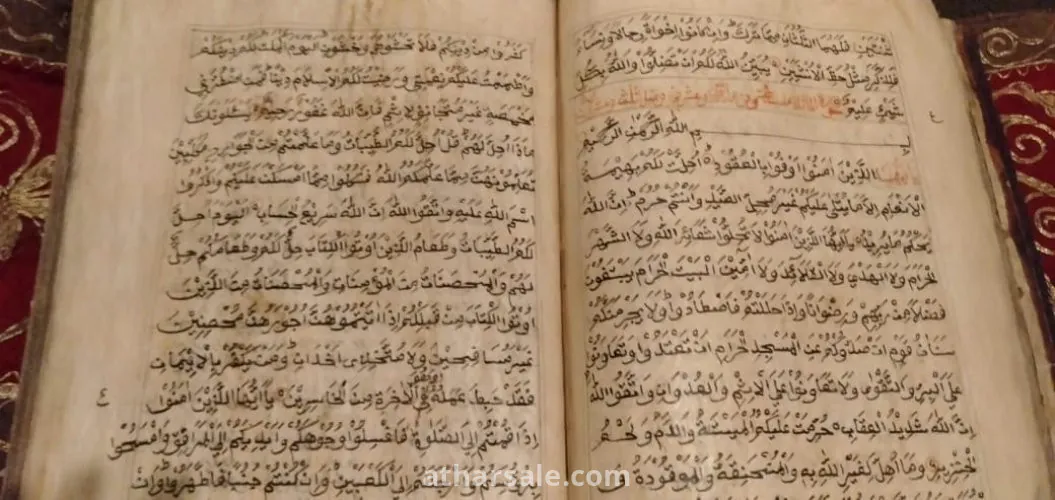 ثنتين فلهما الثلثان مما ترك وان كانوا اخوة رجالا ونساء
فللذكر مثل حظ الانثيين يبين الله لكم ان تضلوا والله بكل
شيء عليم
بسم الله الرحمن الرحيم
يا ايها الذين امنوا اوفوا بالعقود احلت لكم بهيمة
الانعام الا ما يتلى عليكم غير محلي الصيد وانتم حرم ان الله
يحكم ما يريد يا ايها الذين امنوا لا تحلوا شعائر الله ولا الشهر
الحرام ولا الهدي ولا القلائد ولا امين البيت الحرام يبتغون
فضلا من ربهم ورضوانا واذا حللتم فاصطادوا ولا يجرمنكم
شنان قوم ان صدوكم عن المسجد الحرام ان تعتدوا وتعاونوا
على البر والتقوى ولا تعاونوا على الاثم والعدوان واتقوا الله
ان الله شديد العقاب حرمت عليكم الميتة والدم ولحم
الخنزير وما اهل لغير الله به والمنخنقة والموقوذة
كفروا من دينكم فلا تخشوهم واخشون اليوم اكملت لكم دينكم
واتممت عليكم نعمتي ورضيت لكم الاسلام دينا فمن اضطر في
مخمصة غير متجانف لاثم فان الله غفور رحيم يسئلونك
ماذا احل لهم قل احل لكم الطيبات وما علمتم من الجوارح مكلبين
تعلمونهن مما علمكم الله فكلوا مما امسكن عليكم واذكروا
اسم الله عليه واتقوا الله ان الله سريع الحساب اليوم احل
لكم الطيبات وطعام الذين اوتوا الكتاب حل لكم وطعامكم حل
لهم والمحصنات من المؤمنات والمحصنات من الذين
اوتوا الكتاب من قبلكم اذا اتيتموهن اجورهن محصنين
غير مسافحين ولا متخذي اخدان ومن يكفر بالايمان
فقد حبط عمله وهو في الاخرة من الخاسرين يا ايها الذين امنوا
اذا قمتم الى الصلوة فاغسلوا وجوهكم وايديكم الى المرافق وامسحوا
برءوسكم وارجلكم الى الكعبين وان كنتم جنبا فاطهروا وان
٤
٤
atharsale.com